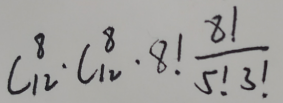 C₁₂⁸ · C₁₂⁸ · 8! 8!/(5! 3!)